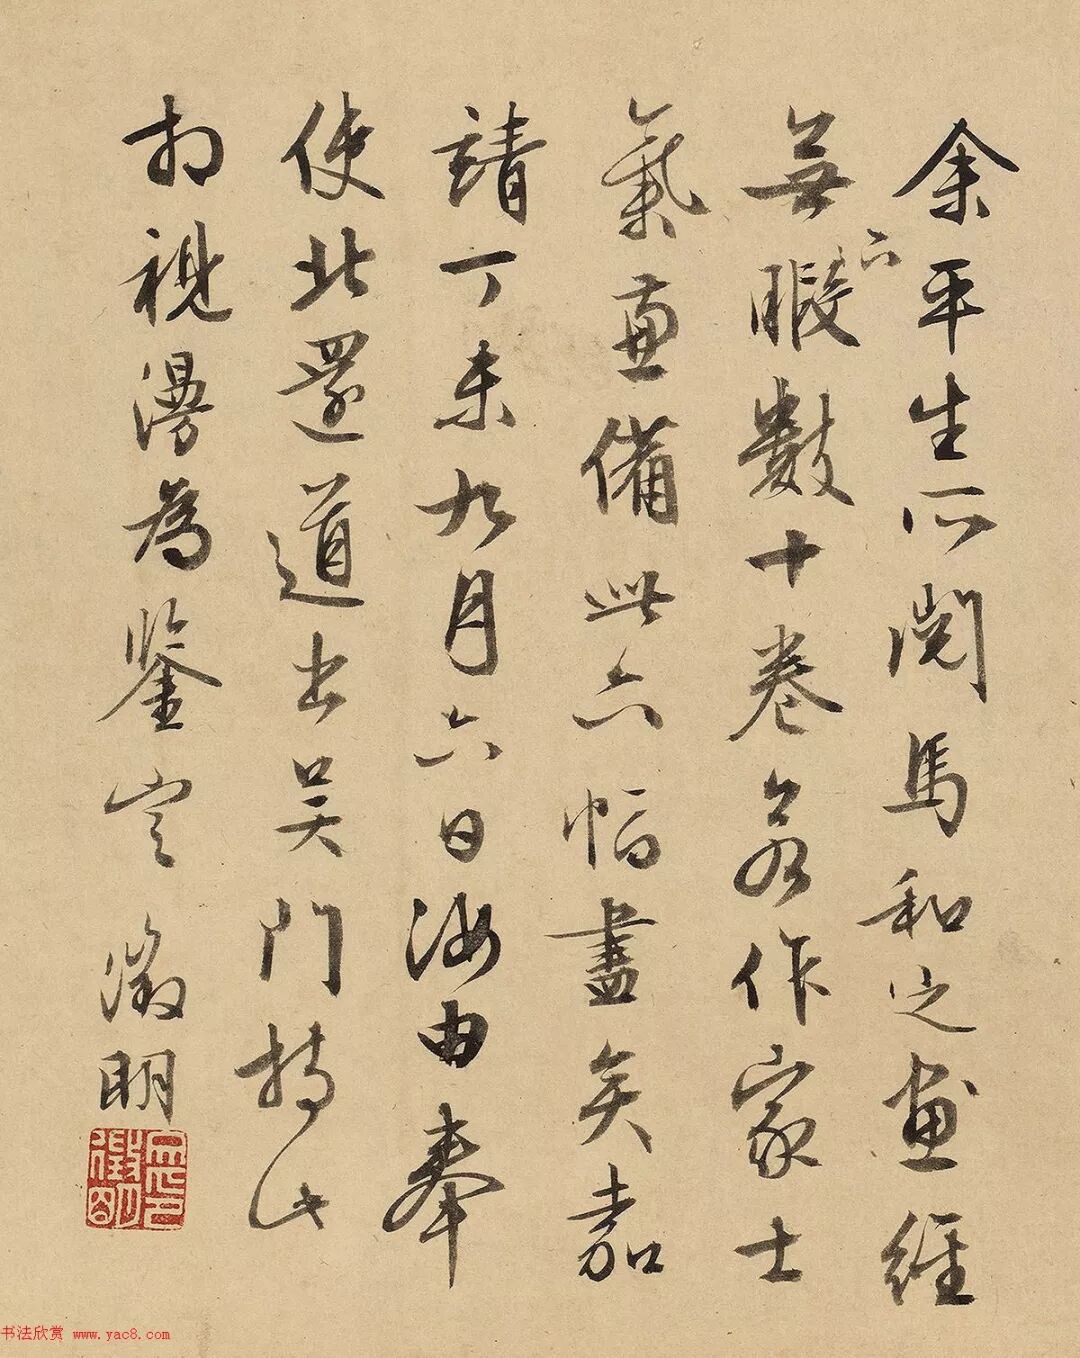 余平生所閱馬和之畫經
無暇數十卷若作家士
氣兼備此六幅盡矣嘉
靖丁未九月六日海由奉
使北還道出吳門持此
相視漫為鑒定 徵明
徵明
书法欣赏 www.yac8.com